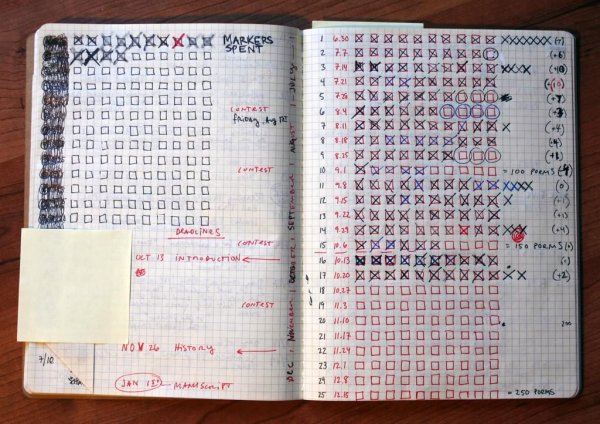 MARKERS
SPENT
CONTEST
CONTEST
DEADLINES
CONTEST
OCT 13 INTRODUCTION
CONTEST
NOV 26 HISTORY
7/10
JAN 15 MANUSCRIPT
DEC | NOVEMBER | OCTOBER | SEPTEMBER | AUGUST | JULY
1 6.30 (-7)
2 7.7
3 7.14
4 7.21
5 7.28
6 8.4
7 8.11 (+4)
8 8.18
9 8.25
10 9.1 = 100 POEMS
11 9.8 (0)
12 9.15 (+1)
13 9.22 (+3)
14 9.29 (+4)
15 10.6 = 150 POEMS
16 10.13
17 10.20 (+2)
18 10.27
19 11.3
20 11.10 200
21 11.17
22 11.24
23 12.1
24 12.8
25 12.15 = 250 POEMS